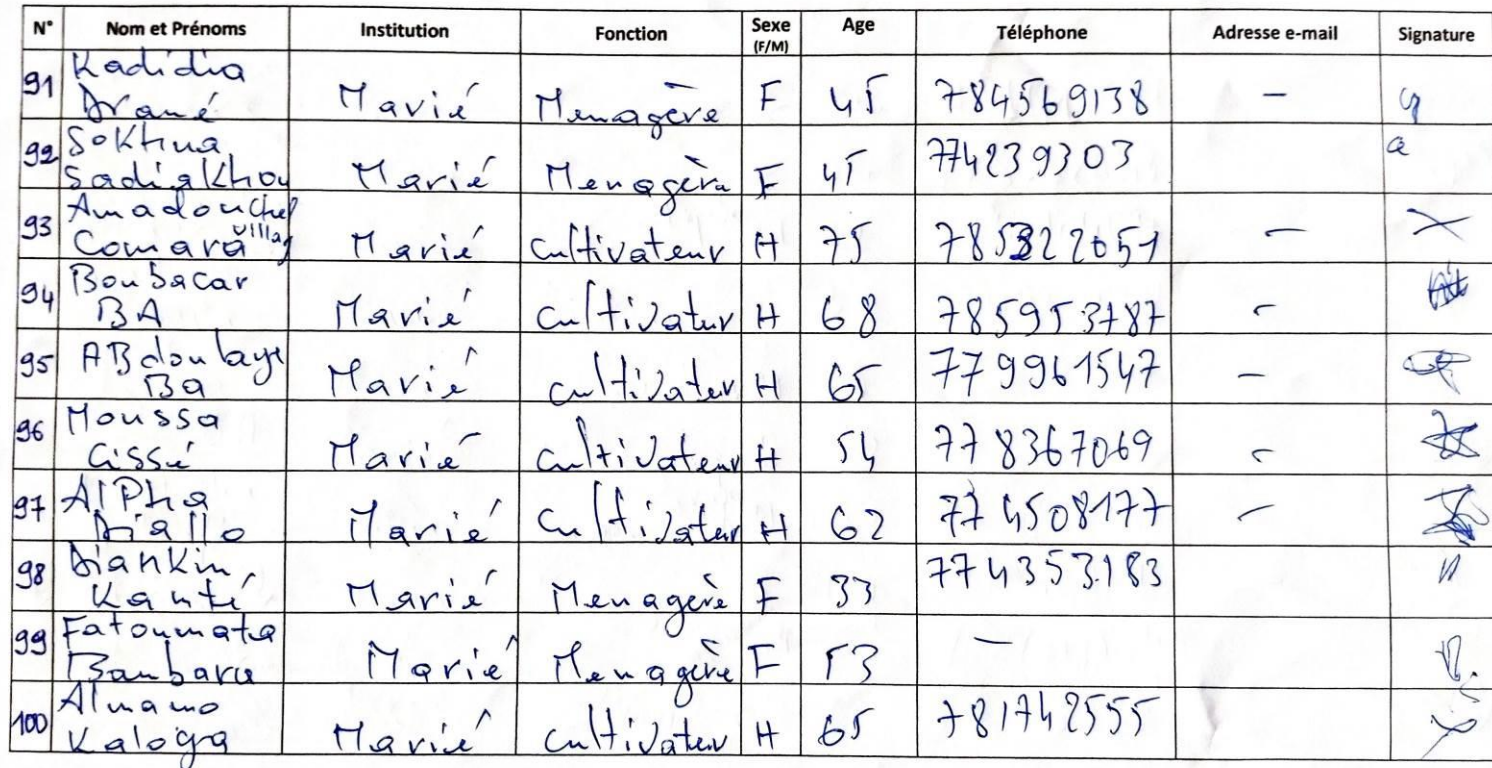 N° Nom et Prénoms Institution Fonction Sexe (F/M) Age Téléphone Adresse e-mail Signature
91 Kadidia Dramé Marié Menagère F 45 784569138 -
92 Sokhna Sadiakhou Marié Menagère F 45 774239303
93 Amadou Chef village Camara Marié cultivateur H 75 785322651 -
94 Boubacar BA Marié cultivateur H 68 785953787 -
95 ABdoulaye Ba Marié cultivateur H 65 779961547 -
96 Moussa Cissé Marié cultivateur H 54 778367069 -
97 AlPha Diallo Marié cultivateur H 62 774508177 -
98 Diankin Kanté Marié Menagère F 33 774353183
99 Fatoumata Banbara Marié Menagère F 53 -
100 Almamo Kaloga Marié cultivateur H 65 781742555